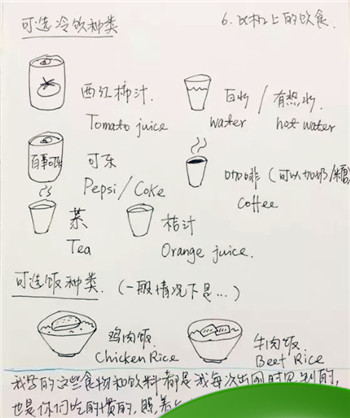 可选冷饮种类
6. 飞机上的饮食.
西红柿汁.
Tomato juice
百事可乐
可乐
Pepsi/Coke
白水 / 有热水
water hot water
咖啡 (可以加奶/糖)
coffee
茶
Tea
桔汁
Orange juice.
可选饭种类. (一般情况下是...)
鸡肉饭
Chicken Rice
牛肉饭.
Beef Rice
我写的这些食物和饮料都是我每次出国时见到的,
也是你们吃的惯的,